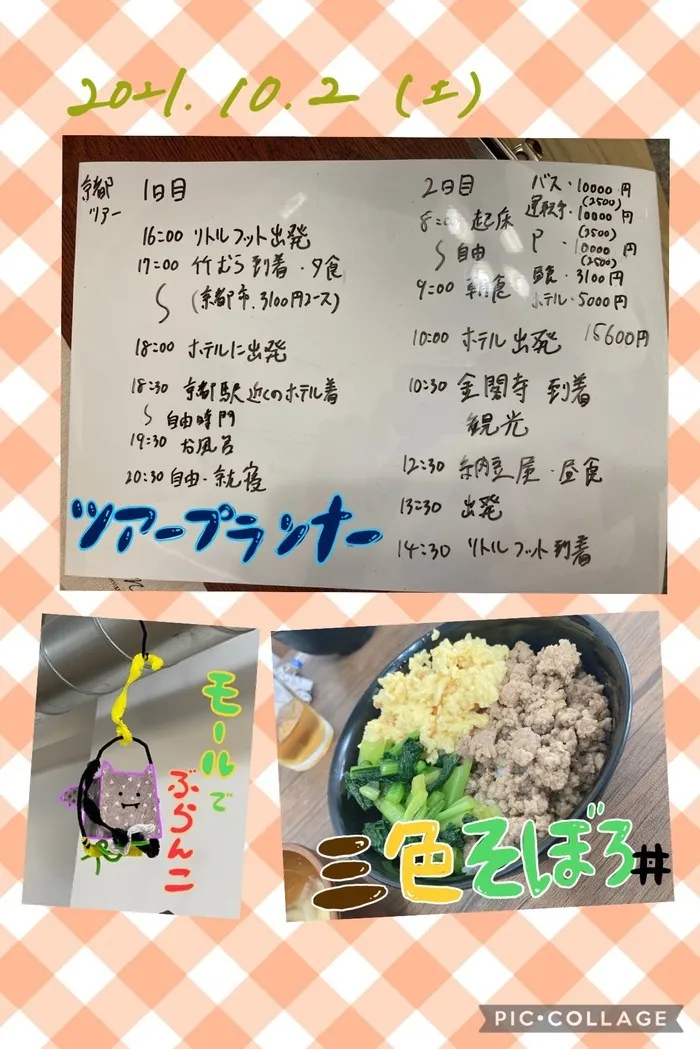 2021.10.2 (土)
京都
ツアー
1日目
16:00 リトルフット出発
17:00 竹むら到着・夕食
〜 (京都市、3100円コース)
18:00 ホテルに出発
18:30 京都駅近くのホテル着
〜 自由時間
19:30 お風呂
20:30 自由・就寝
2日目
8:00 起床
〜 自由
9:00 朝食
10:00 ホテル出発
10:30 金閣寺 到着
観光
12:30 納豆屋・昼食
13:30 出発
14:30 リトルフット到着
バス・10000円
(2500)
運転手・10000円
(2500)
P・10000円
(2500)
・3100円
ホテル・5000円
15600円
ツアープランナー
モールで
ぶらんこ
三色そぼろ丼
PIC•COLLAGE